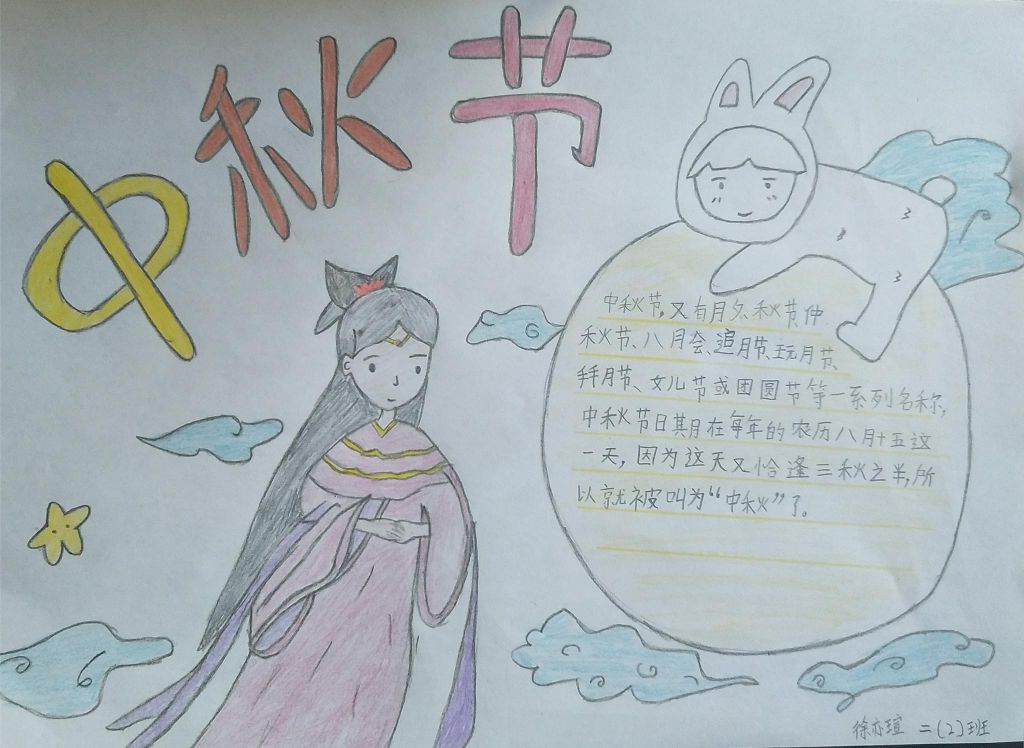 中秋节
中秋节,又有月夕、秋节、仲
秋节、八月会、追月节、玩月节、
拜月节、女儿节或团圆节等一系列名称,
中秋节日其月在每年的农历八月十五这
一天,因为这天又恰逢三秋之半,所
以就被叫为“中秋”了。
徐亦瑄 二(2)班